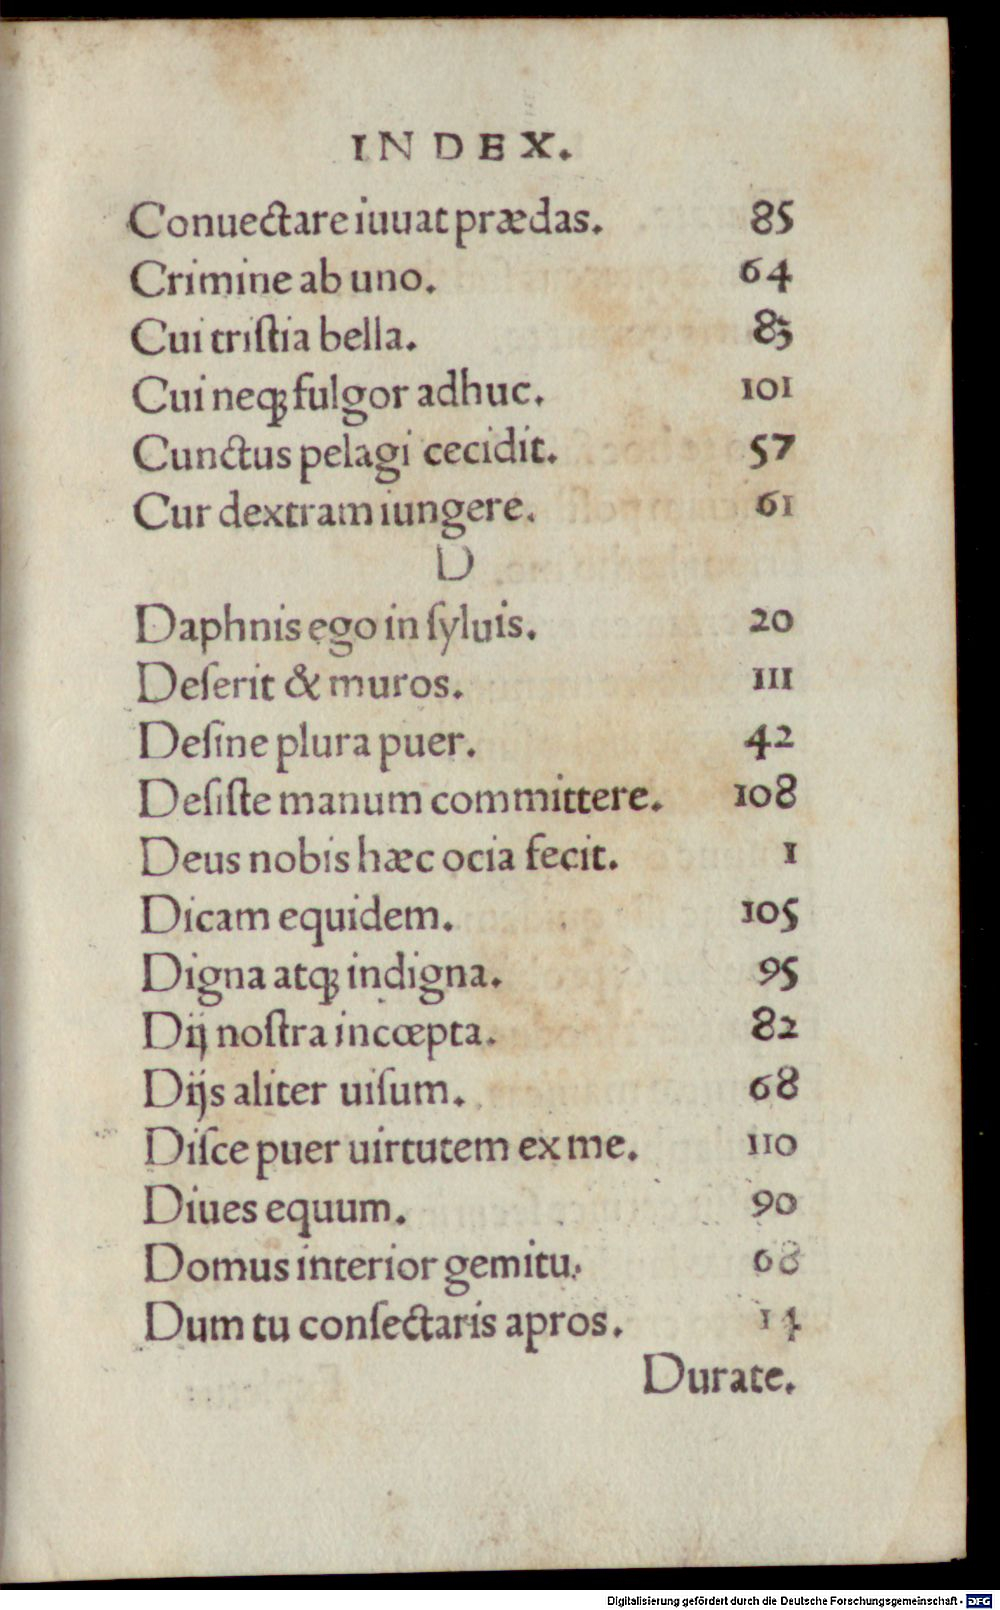 INDEX.
Conuectare iuuat prædas. 85
Crimine ab uno. 64
Cui triſtia bella. 83
Cui neqꝫ fulgor adhuc. 101
Cunctus pelagi cecidit. 57
Cur dextram iungere. 61
D
Daphnis ego in ſyluis. 20
Deſerit & muros. 111
Deſine plura puer. 42
Deſiſte manum committere. 108
Deus nobis hæc ocia fecit. 1
Dicam equidem. 105
Digna atqꝫ indigna. 95
Dij noſtra incœpta. 82
Dijs aliter uiſum. 68
Diſce puer uirtutem ex me. 110
Diues equum. 90
Domus interior gemitu. 68
Dum tu conſectaris apros. 14
Durate.
Digitalisierung gefördert durch die Deutsche Forschungsgemeinschaft - DFG